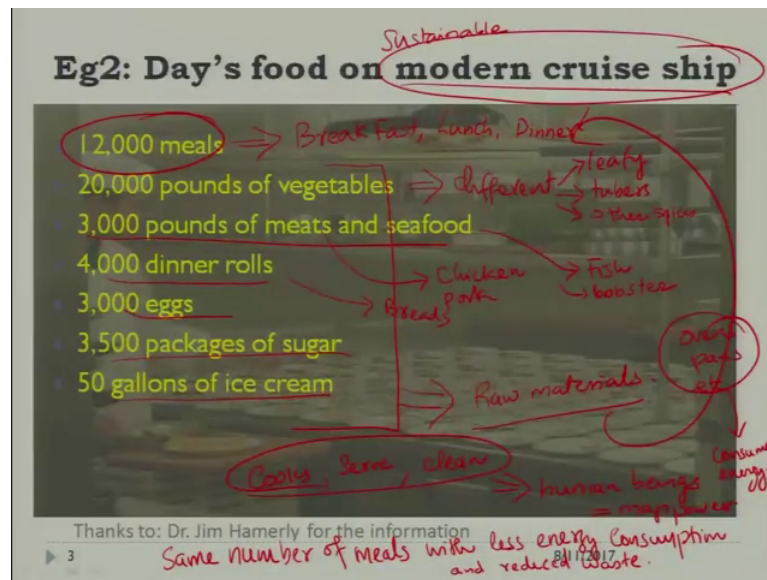 Sustainable
Eg2: Day's food on modern cruise ship
12,000 meals ⇒ Breakfast, Lunch, Dinner
20,000 pounds of vegetables ⇒ different → leafy
→ tubers
→ other spices
3,000 pounds of meats and seafood
→ Fish
→ lobster
4,000 dinner rolls
→ Chicken
pork
3,000 eggs
→ Breads
3,500 packages of sugar
ovens
pans
etc
50 gallons of ice cream
⇒ Raw materials.
Consume
energy.
Cooks, Serve, clean
⇒ human beings
= manpower
Thanks to: Dr. Jim Hamerly for the information
3
8/11/2017
Same number of meals with less energy consumption
and reduced waste.